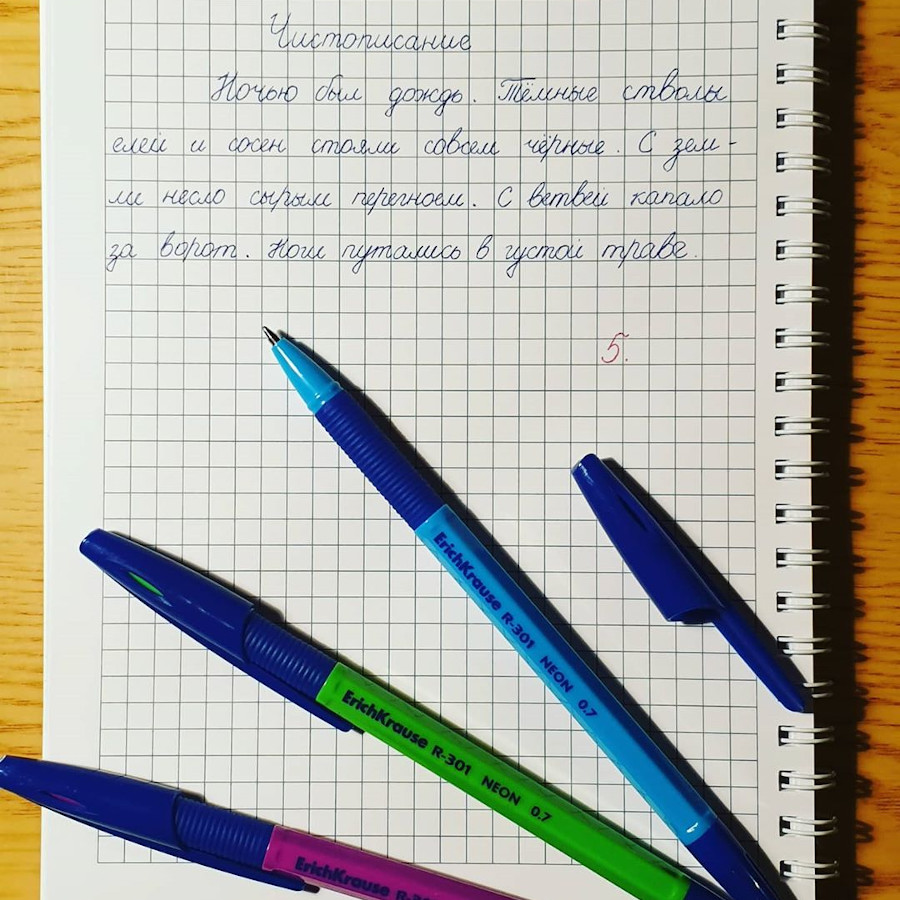 Чистописание
Ночью был дождь. Тёмные стволы
елей и сосен стояли совсем чёрные. С зем-
ли несло сырым перегноем. С ветвей капало
за ворот. Ноги путались в густой траве.
5.
ErichKrause R-301 NEON 0.7
ErichKrause R-301 NEON 0.7
ErichKrause